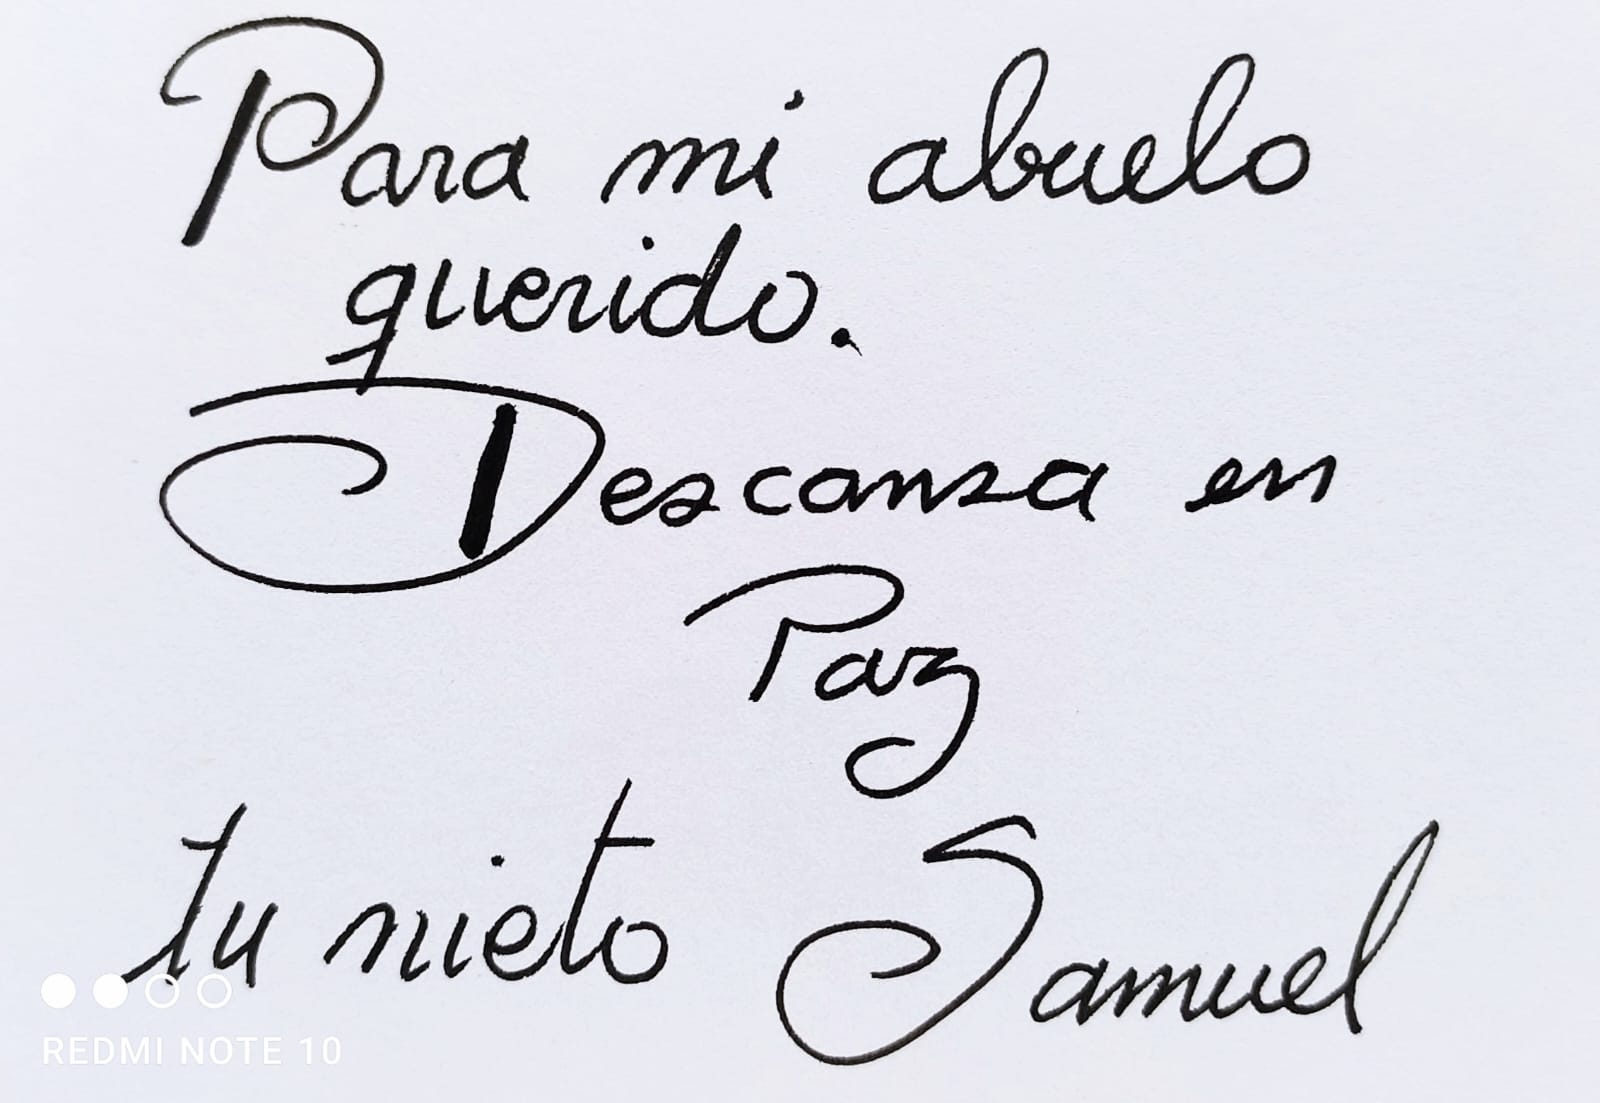 Para mi abuelo
querido.
Descansa en
Paz
tu nieto Samuel
REDMI NOTE 10